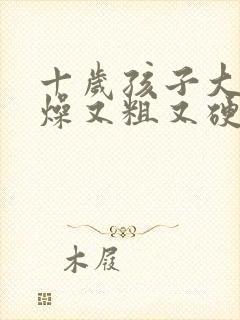 十歲孩子大
燥又粗又硬
木屐